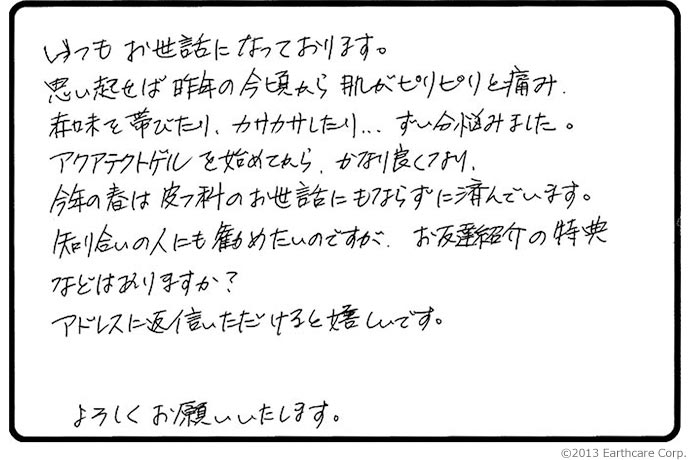 いつも お世話になっております。
思い起せば 昨年の今頃から 肌がピリピリと痛み、
赤味を帯びたり、カサカサしたり... ずい分悩みました。
アクアテクトゲルを始めてから、かなり良くなり、
今年の春は皮フ科のお世話にもならずに済んでいます。
知り合いの人にも勧めたいのですが、お友達紹介の特典
などはありますか?
アドレスに返信いただけると嬉しいです。
よろしくお願いいたします。
©2013 Earthcare Corp.